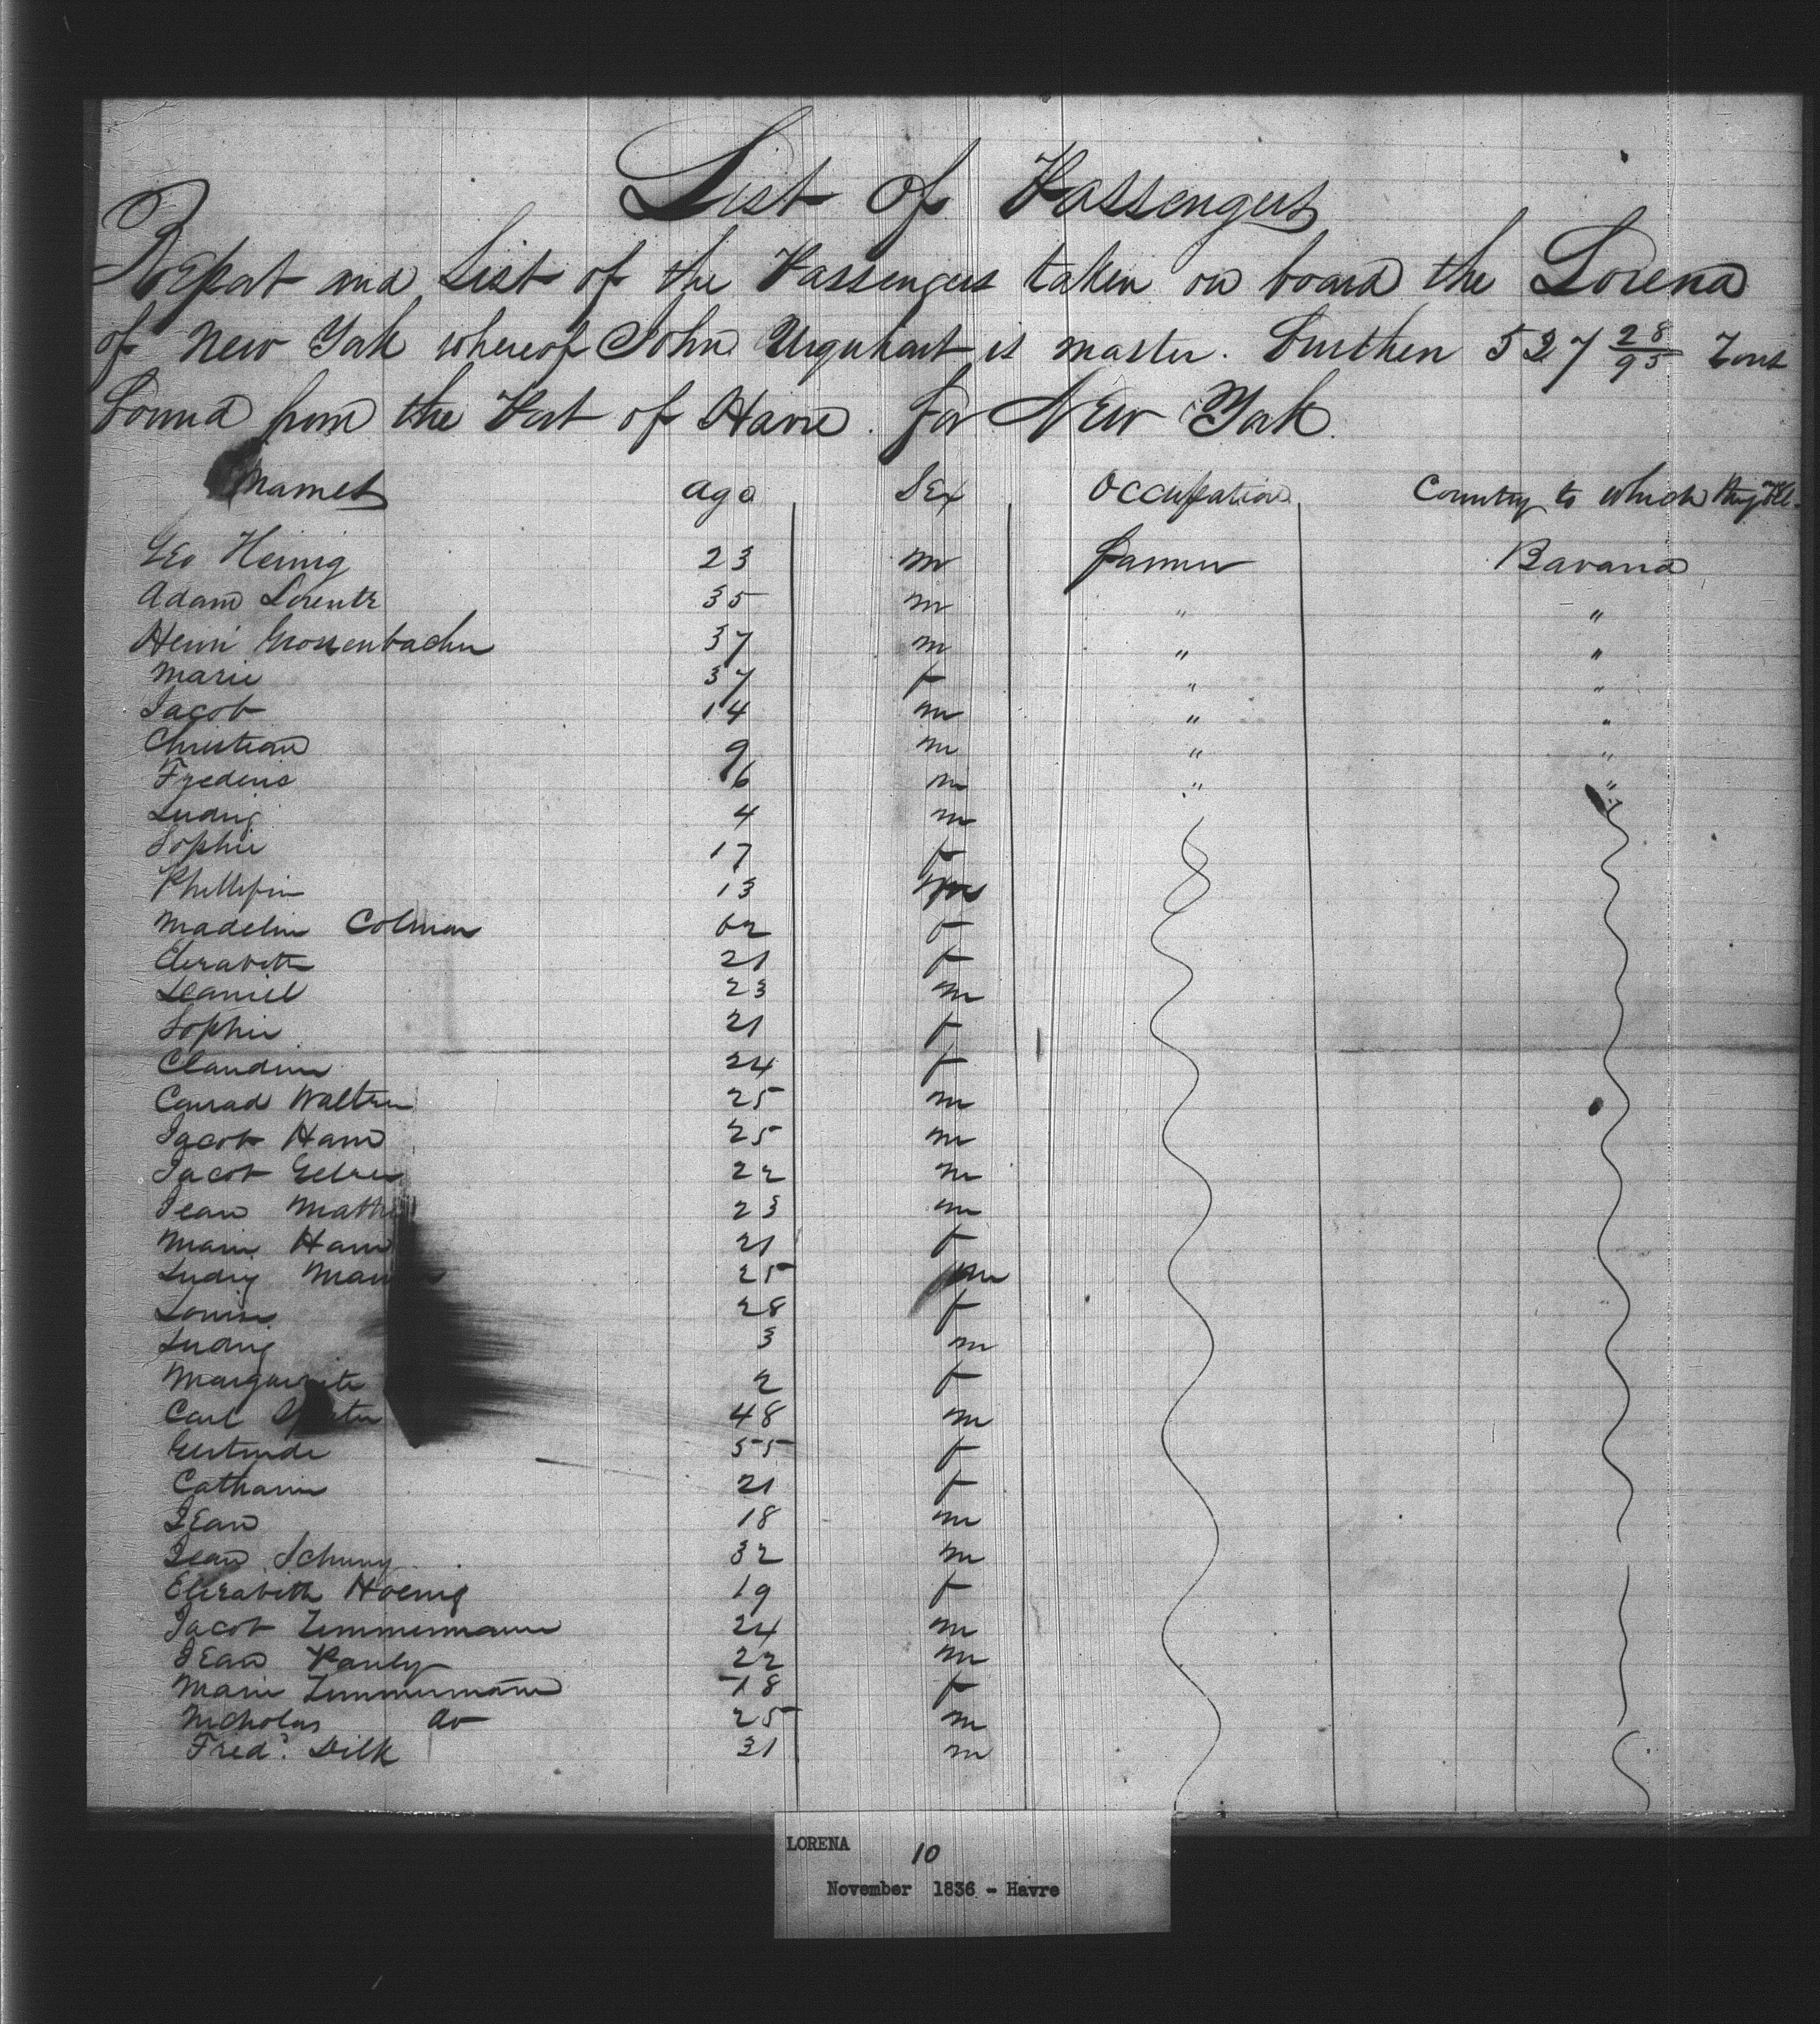 List of Passengers
Report and List of the Passengers taken on board the Lorena
of New York whereof John Urquhart is master. Burthen 527 28/95 Tons
Bound from the Port of Havre for New York.
Names Age Sex Occupation Country to which they
Geo Heinig 23 m Farmer Bavaria
Adam Lorentz 35 m " "
Henri Grossenbacher 37 m " "
Marie 37 f " "
Jacob 14 m " "
Christian 9 m " "
Frederic 6 m " "
Ludwig 4 m
Sophie 17 f
Phillipin 13
Madelin Colman 62 f
Elizabeth 21 f
Daniel 23 m
Sophie 21 f
Claudine 24 f
Conrad Walter 25 m
Jacob Ham 25 m
Jacob 22 m
Jean 23 m
Marie Ham 21 f
Ludwig 25 m
Louise 28 f
Ludwig 3 m
Marguerite 2 f
Carl 48 m
Gertrude 55 f
Catharin 21 f
Jean 18 m
Jean Schuny 32 m
Elizabeth Hoenig 19 f
Jacob Zimmermann 24 m
Jean Pauly 22 m
Marie Zimmermann 18 f
Nicholas do 25 m
Fred. Dilk 31 m
LORENA 10
November 1836 - Havre